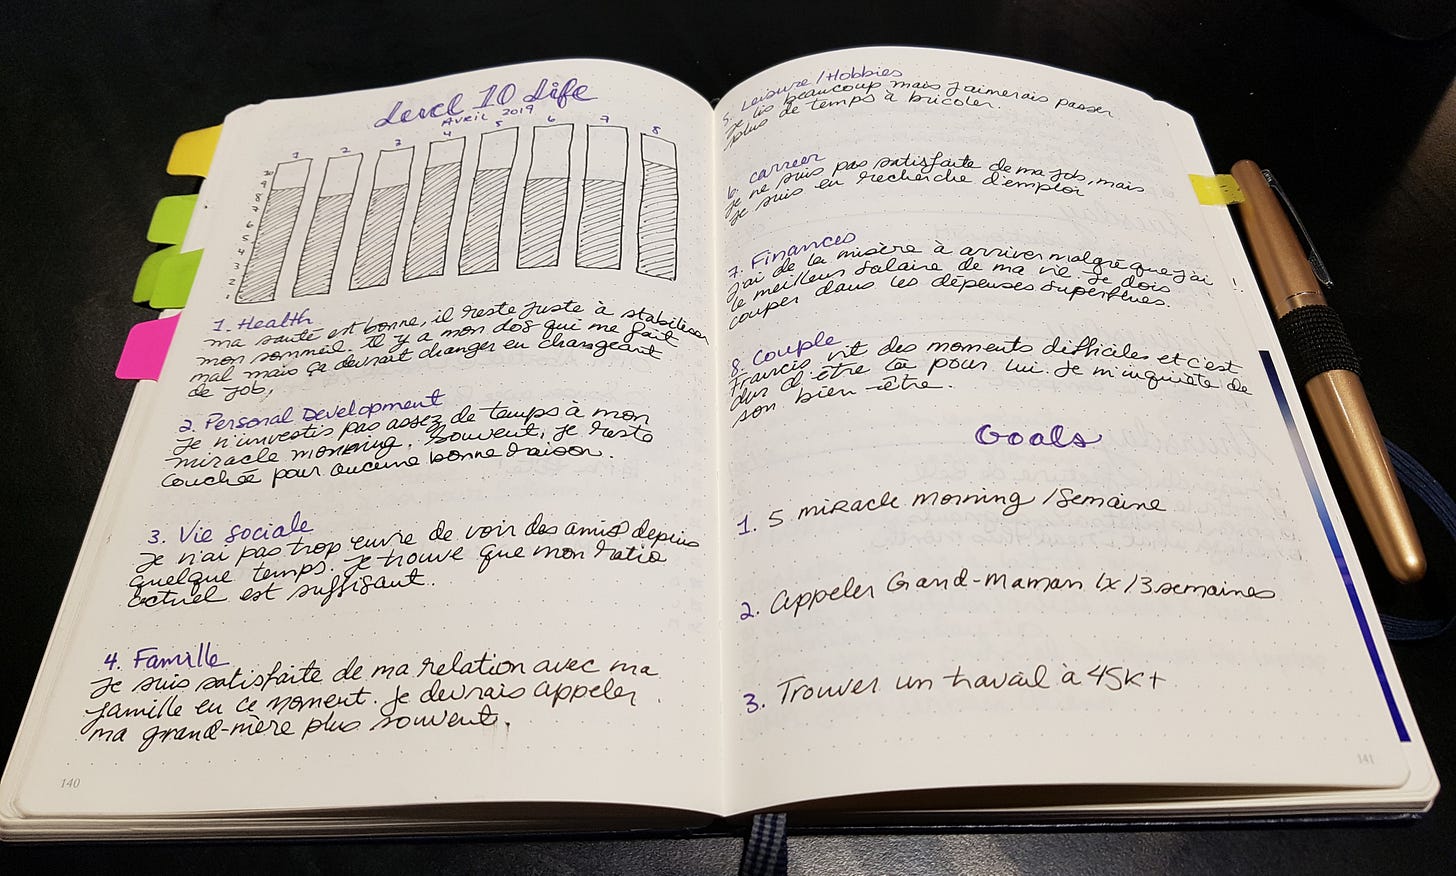 Level 10 Life
Avril 2019
1 2 3 4 5 6 7 8
1. Health
ma santé est bonne, il reste juste à stabiliser
mon sommeil. Il y a mon dos qui me fait
mal mais ça devrait changer en changeant
de job,
2. Personal Development
Je n'investis pas assez de temps à mon
miracle morning. Souvent, je reste
couchée pour aucune bonne raison.
3. Vie sociale
Je n'ai pas trop envie de voir des amis depuis
quelque temps. Je trouve que mon ratio
actuel est suffisant.
4. Famille
Je suis satisfaite de ma relation avec ma
famille en ce moment. Je devrais appeler
ma grand-mère plus souvent.
140
5. Leisure/Hobbies
Je lis beaucoup mais j'aimerais passer
plus de temps à bricoler.
6. Carreer
Je ne suis pas satisfaite de ma job, mais
je suis en recherche d'emploi
7. Finances
J'ai de la misère à arriver malgré que j'ai
le meilleur salaire de ma vie. Je dois
couper dans les dépenses superflues.
8. Couple
Francis vit des moments difficiles et c'est
dur d'être là pour lui. Je m'inquiète de
son bien-être.
Goals
1. 5 miracle morning /semaine
2. Appeler Grand-Maman 1x/3 semaines
3. Trouver un travail à 45K+
141